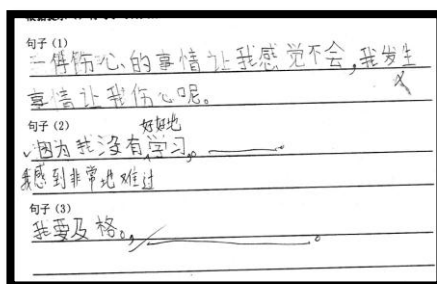 句子 (1)
一件伤心的事情让我感觉不会，我发生
事情让我伤心呢。
句子 (2)
好好地
因为我没有学习。
我感到非常地难过
句子 (3)
我要及格。